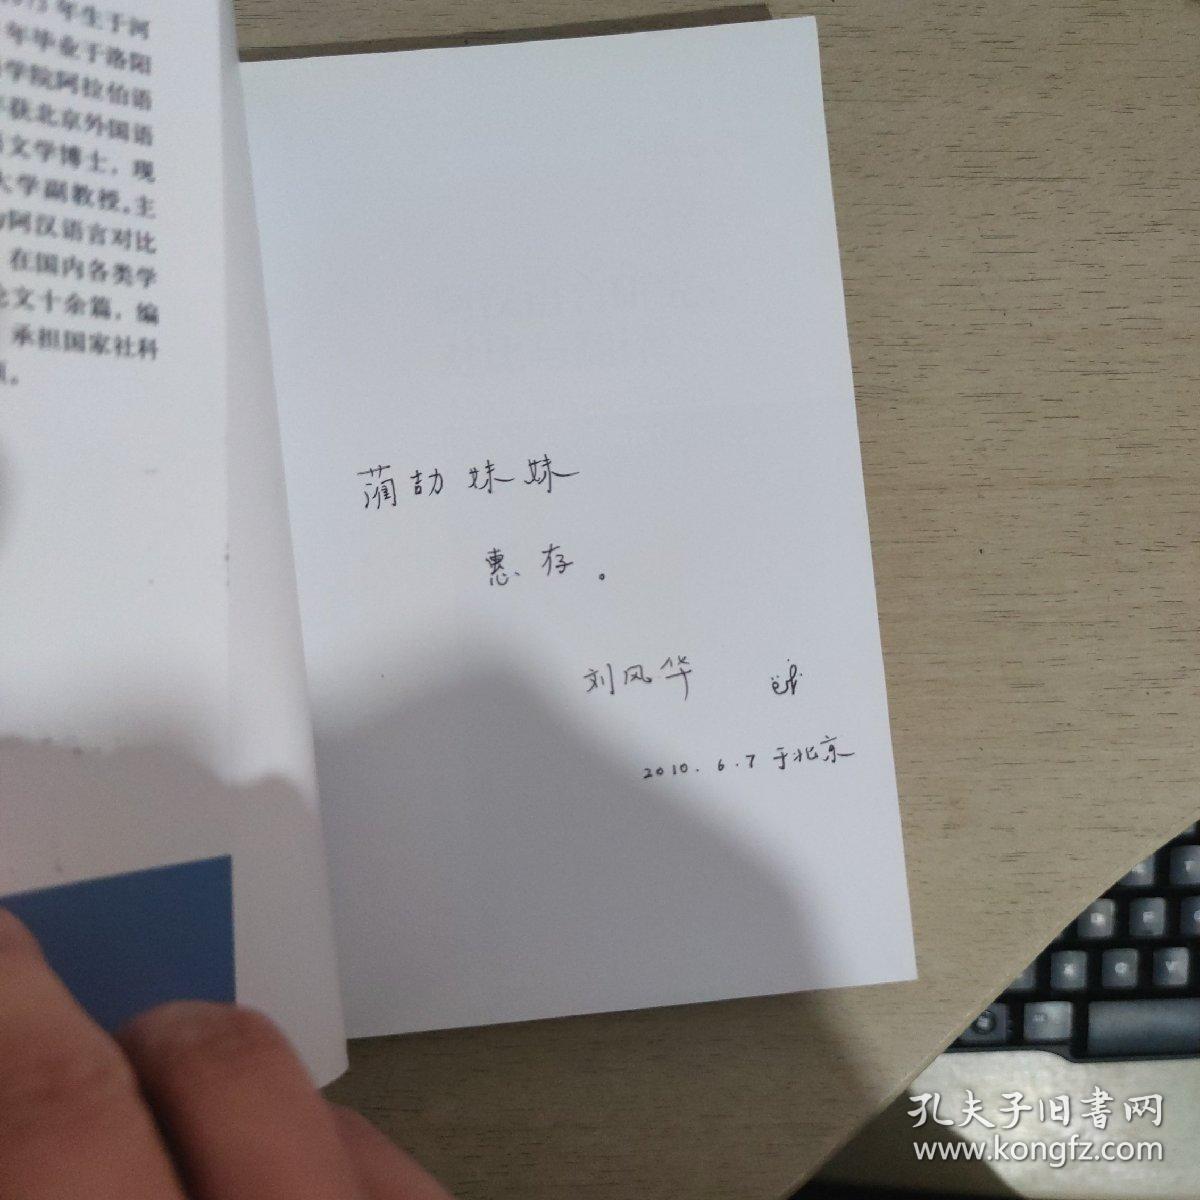 年生于河
年毕业于洛阳
学院阿拉伯语
获北京外国语
文学博士，现
大学副教授，主
阿汉语言对比
在国内各类学
论文十余篇，编
承担国家社科
妹妹
惠存。
刘风华
2010.6.7 于北京
孔夫子旧书网
www.kongfz.com